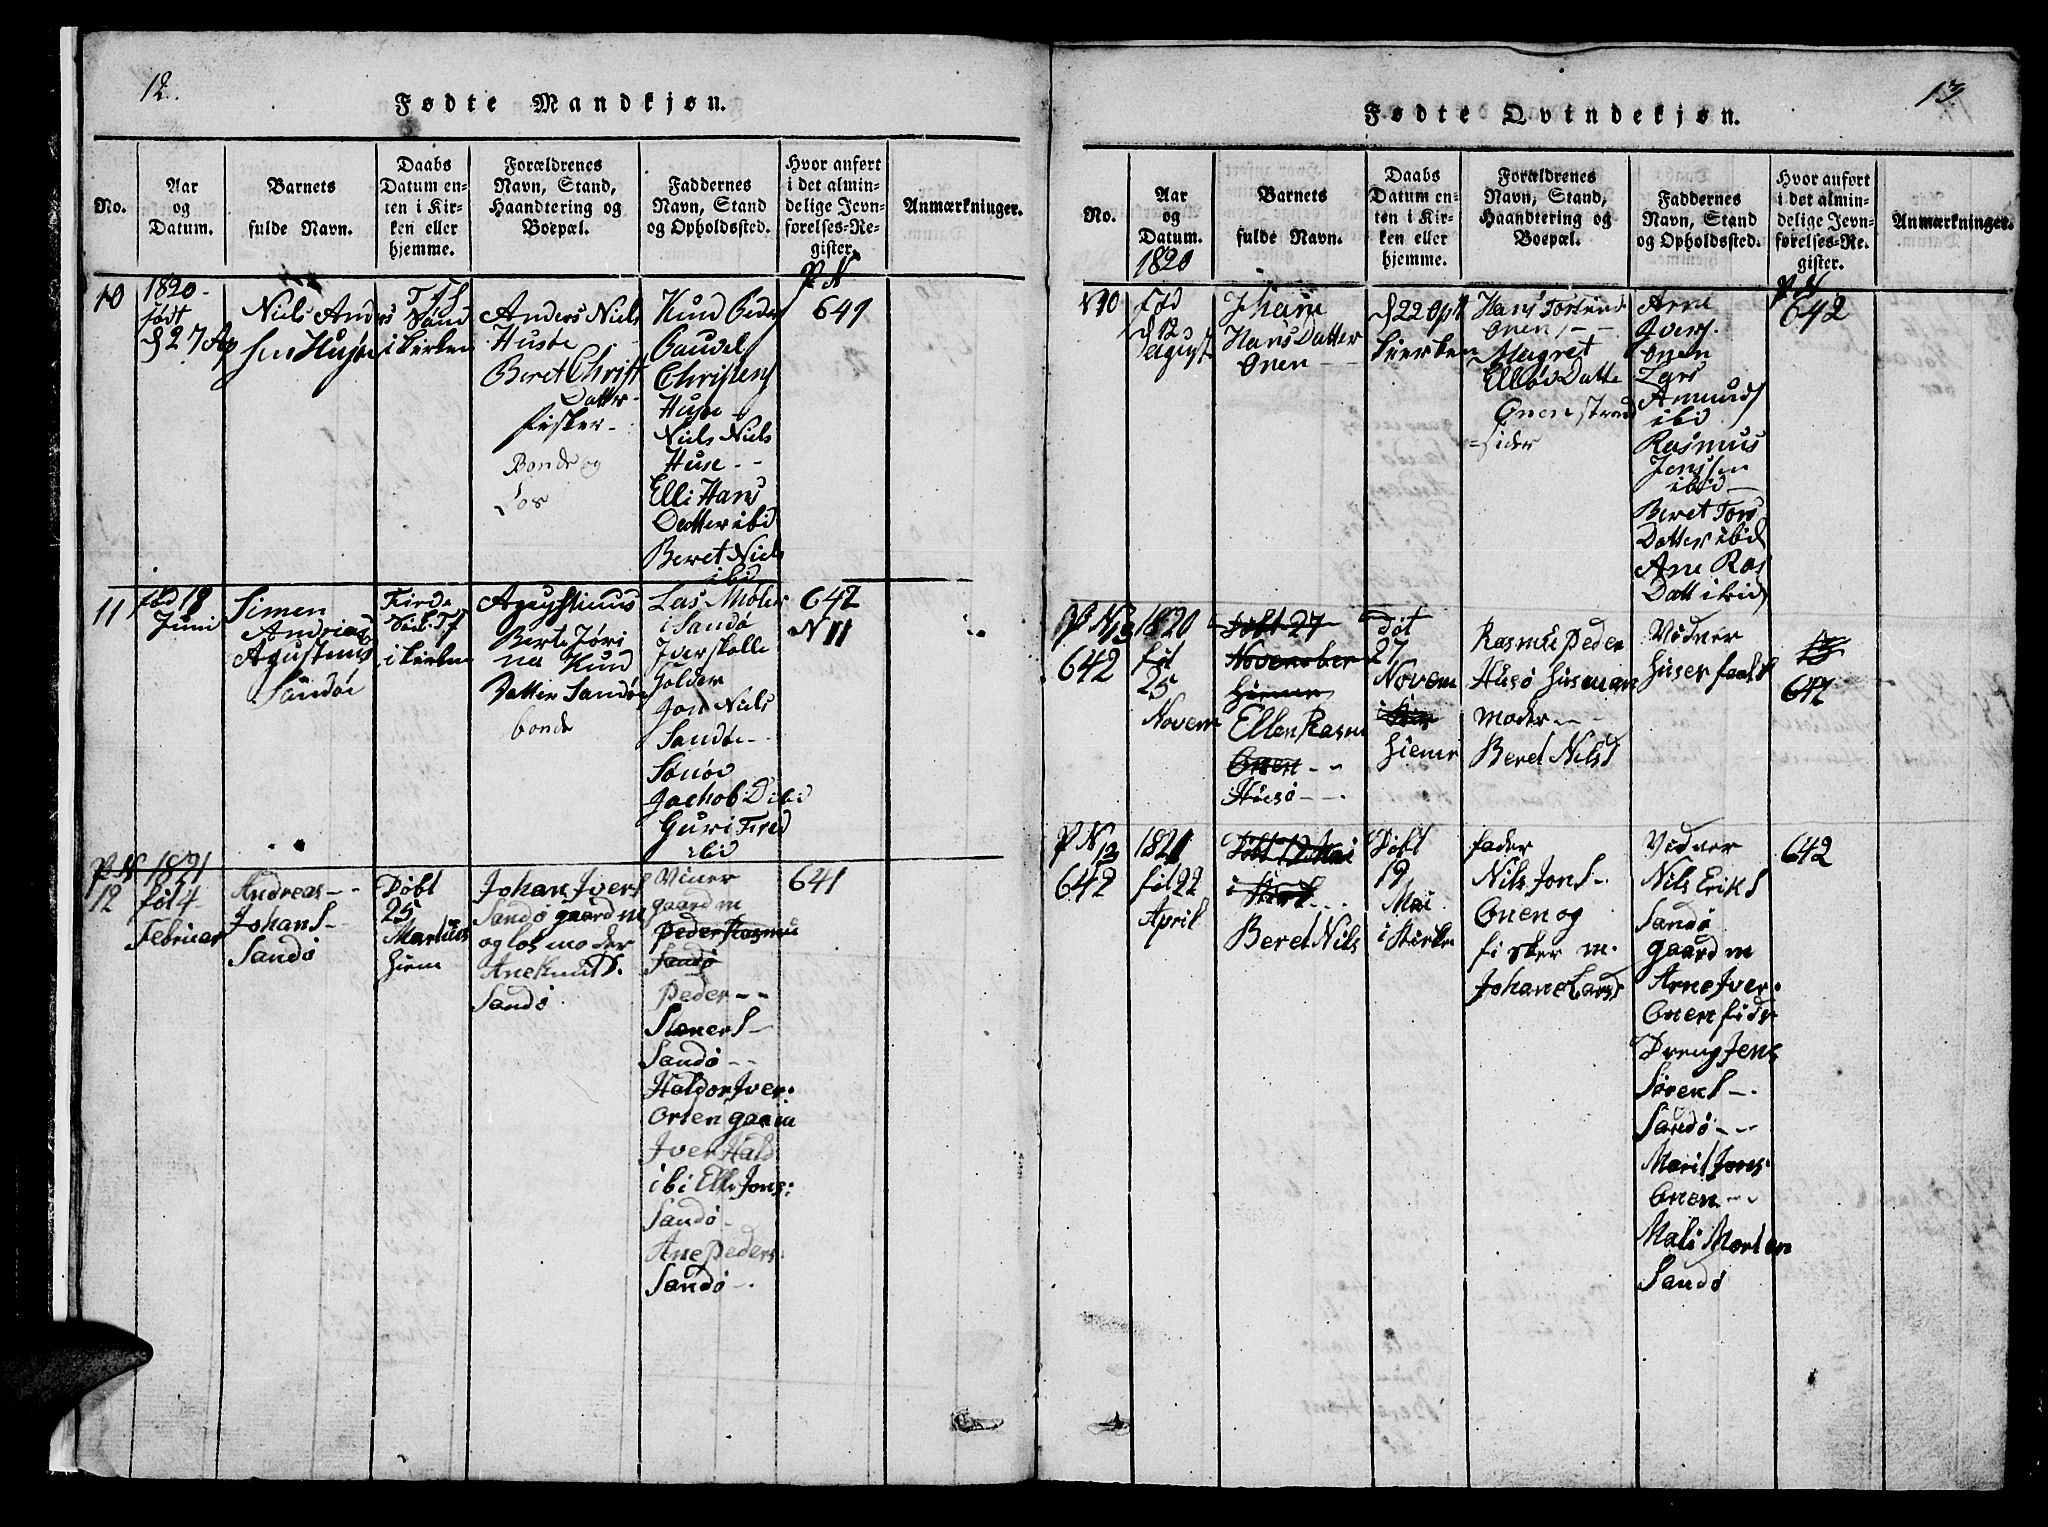 12.
Fødte Mandkjøn.
No.
Aar
og
Datum.
Barnets
fulde Navn.
Daabs
Datum en-
ten i Kir-
ken eller
hjemme.
Forældrenes
Navn, Stand,
Haandtering og
Boepæl.
Faddernes
Navn, Stand
og Opholdssted.
Hvor anført
i det almin-
delige Jevn-
førelses-Re-
gister.
Anmærkninger.
10
1820
født
27 Ap
Niels Anders
sen Husøe
i kirken
Anders Niels
Husøe
Beret Christ
Datter
fisker
Bonde og
Los
Knud Peders
Gaudel
Christens
Huse
Niels Niels
Huse
Elli Hans
Datter ibid
Beret Niels
ibid
P N
641
11
fød 18
Juni
Simen
Andreas
Agustinus
Sandøe
i kirken
Agustinus
Berte Jøri
na Knud
Datter Sandøe
bonde
Las Møler
i Sandø
Iver skolle
holder
Jon Niels
Sandøe
Sønøv
Jachob D ibid
Guri Fred
ibid
642
N 11
P N
12
1821
føt 4
Februar
Andreas
Johan S
Sandø
Døbt
25
Martius
hiem
Johan Ivers
Sandø gaard m
og los moder
Ane Knut D.
Sandø
Viner
gaard m
Peder Rasmu
Sandø
Peder
Stener S
Sandø
Haldor Iver
Orten gaarm
Iver Hald
ibi Elli Jons
Sandø
Ane Peders
Sandø
641
13
Fødte Qvindekjøn.
No.
Aar
og
Datum.
1820
Barnets
fulde Navn.
Daabs
Datum en-
ten i Kir-
ken eller
hjemme.
Forældrenes
Navn, Stand,
Haandtering og
Boepæl.
Faddernes
Navn, Stand
og Opholdssted.
Hvor anført
i det almin-
delige Jevn-
førelses-Re-
gister.
Anmærkninger.
N10
Fød
12
Agust
Hans Datter
Onen
22
Hans
Onen
Magret
Ellev Datte
Onen strand
sider
Arne
Ivers
Onen
Lars
Amunds
ibid
Rasmus
Jenssen
ibid
Beret Tors
Datter ibid
Ane Ras
Datt ibid
P N
642
P N 13
642
1820
føt
25
Novem
Døbt 27
November
Hieme
Ellen Rasm
Onen
Husø
Døt
27
Novem
hieme
Rasmus Peder
Husø husman
moder
Beret Nils D
Vidner
huser faalk
13
642
P N 13
642
1821
føt 22
April
Døbt 19 Mai
i Kirk
Beret Nils
Døbt
19
Mai
i Kirke
fader
Nils Jon S
Onen og
fisker m.
Johane Lars D
Vidner
Nils Erik S
Sandø
gaard m
Arne Iver
Onen
Dreng Jens
Søren S
Sandø
Marit Jons
Onen
Mali Morten
Sandø
642